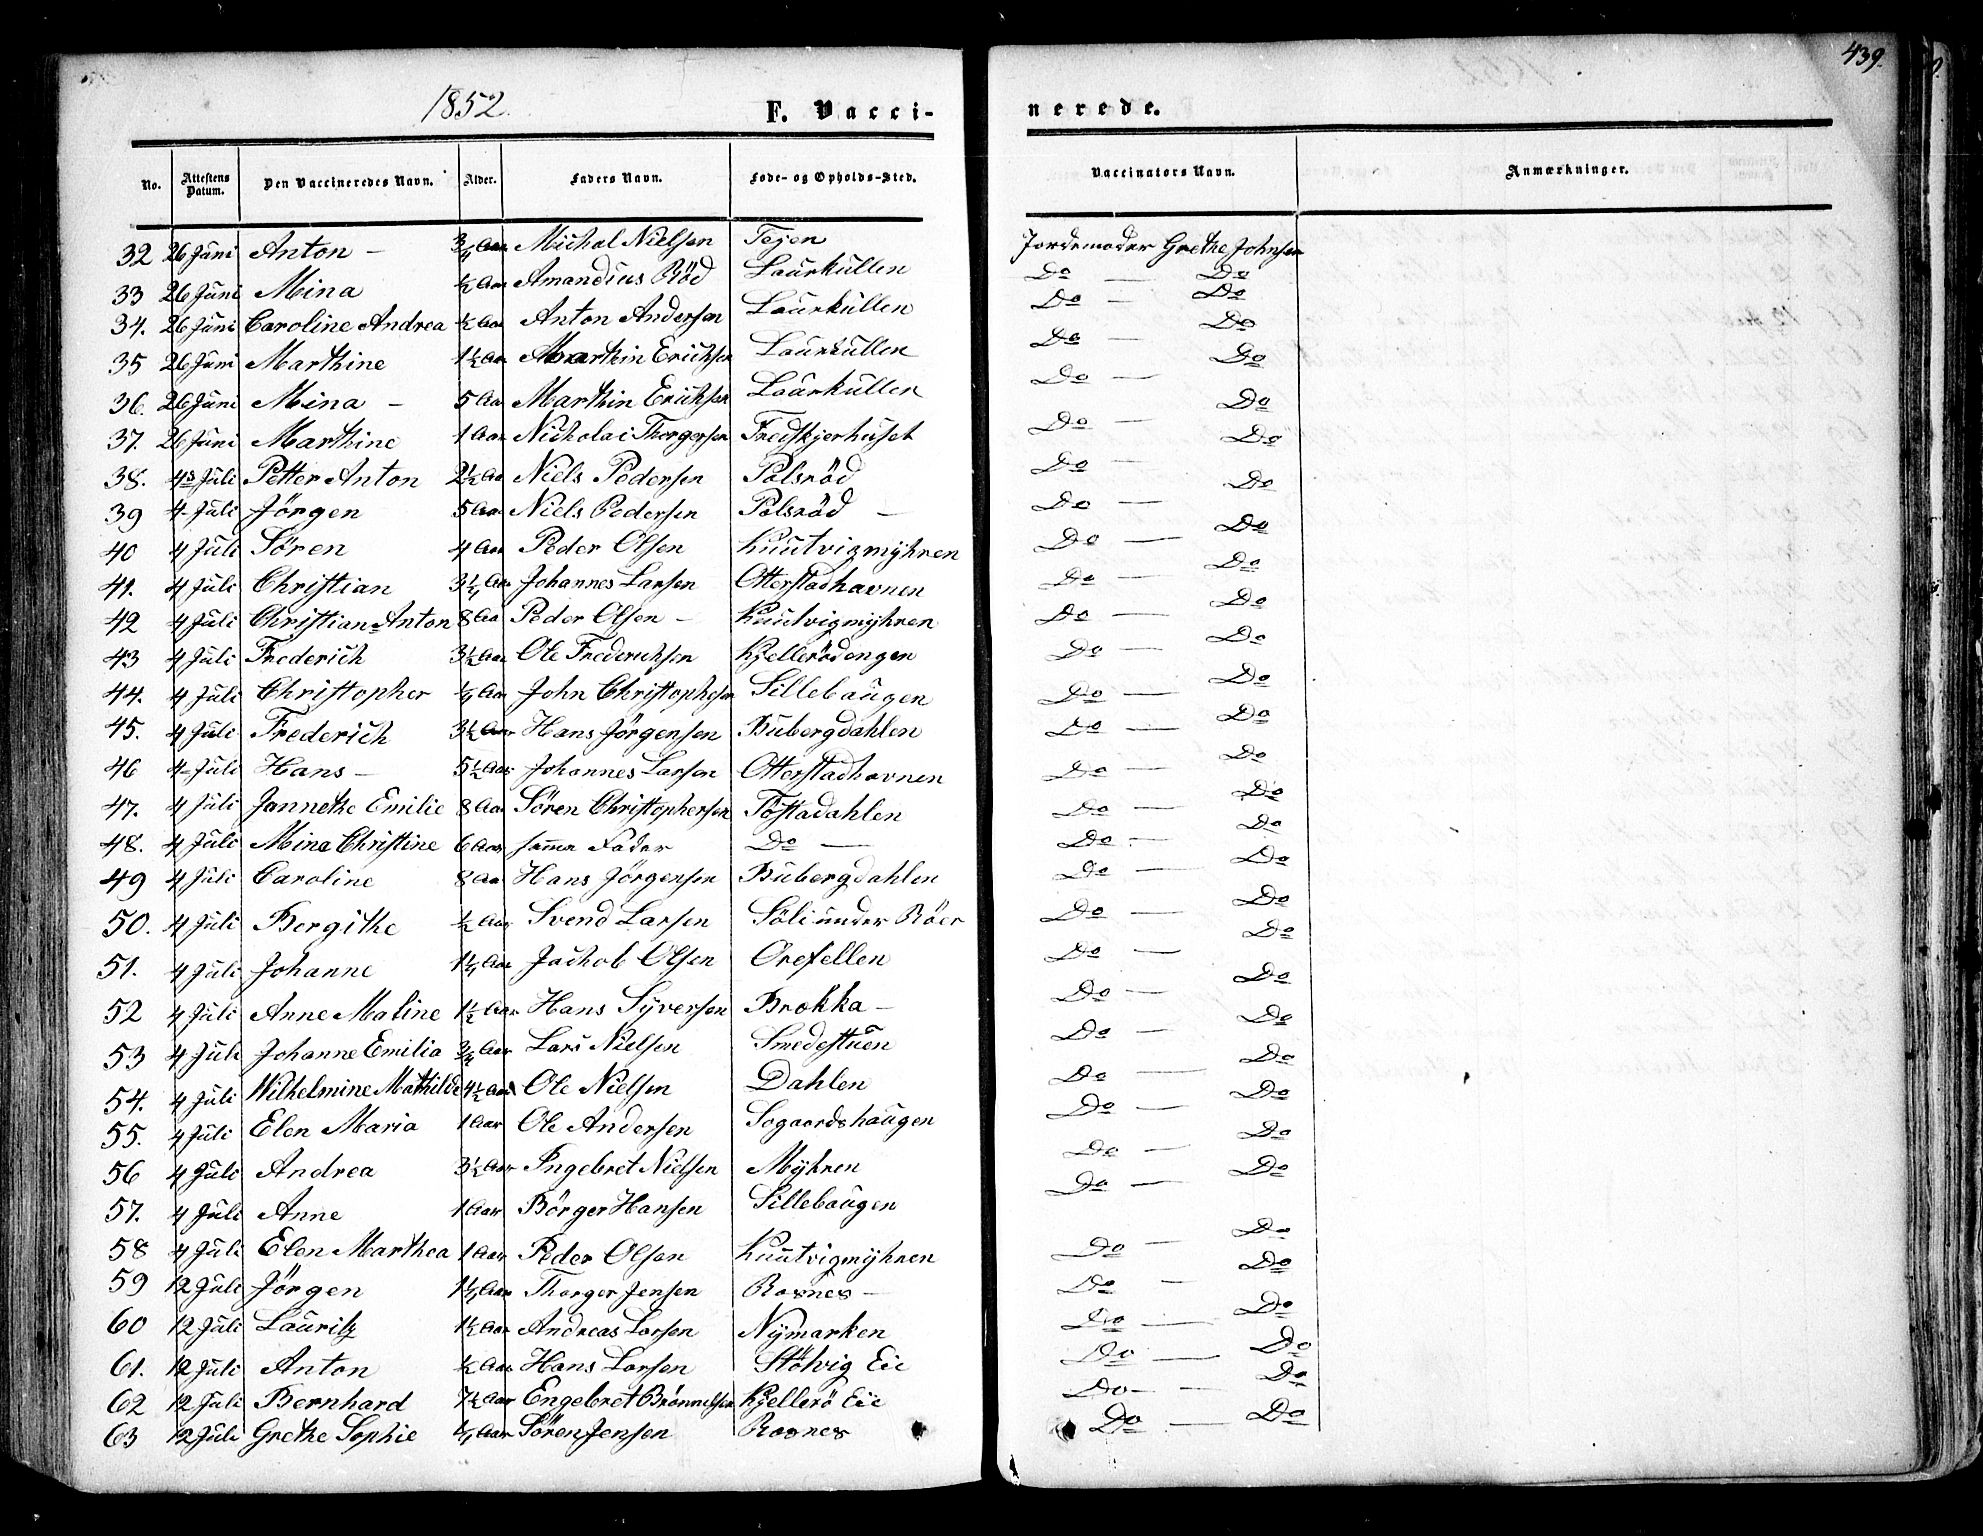 439.
1852.
F. Vaccinerede.
No. Attestens Datum. Den Vaccineredes Navn. Alder. Faders Navn. Føde- og Opholds-Sted. Vaccinators Navn. Anmærkninger.
32 26 Juni Anton – 3/4 Aar Michal Nielsen Tejen Jordemoder Grethe Johnsen
33 26 Juni Mina 1/2 Aar Amandius Röd Laurkullen Do — Do
34. 26 Juni Caroline Andrea 1/2 Aar Anton Andersen Laurkullen Do — Do
35 26 Juni Marthine 1 1/2 Aar Marthin Erichsen Laurkullen Do — Do
36. 26 Juni Mina – 5 Aar Marthin Erichsen Laurkullen Do — Do
37. 26 Juni Marthine 1 Aar Nicholai Thorgersen Fredskjerhuset Do — Do
38. 4de Juli Petter Anton 2 1/2 Aar Niels Pedersen Polsröd Do — Do
39 4 Juli Jörgen 5 Aar Niels Pedersen Polsröd – Do — Do
40 4 Juli Sören 4 Aar Peder Olsen Kuutvigmÿhren Do — Do
41. 4 Juli Christian 3 1/4 Aar Johannes Larsen Otterstadhavnen Do — Do
42 4 Juli Christian Anton 8 Aar Peder Olsen – Kuutvigmÿhren Do — Do
43 4 Juli Frederich 3 1/2 Aar Ole Frederichsen Kjellerödengen Do — Do
44. 4 Juli Christopher 1/4 Aar John Christophesen Sillebaugen Do — Do
45. 4 Juli Frederich 3 1/2 Aar Hans Jörgensen Bubergdahlen Do — Do
46 4 Juli Hans – 5 1/2 Aar Johannes Larsen Otterstadhavnen Do — Do
47. 4 Juli Jannethe Emilie 8 Aar Sören Christophersen Tostadahlen Do — Do
48. 4 Juli Mina Christine 6 Aar samme Fader Do — Do — Do
49 4 Juli Caroline 8 Aar Hans Jörgensen Bubergdahlen Do — Do
50. 4 Juli Bergithe 1/2 Aar Svend Larsen Söli under Röer Do — Do
51. 4 Juli Johanne 1 1/4 Aar Jachob Olsen Orefellen Do — Do
52 4 Juli Anne Maline 1 1/2 Aar Hans Sÿversen Brokka – Do — Do
53 4 Juli Johanne Emilia 3/4 Aar Lars Nielsen Smedestuen Do — Do
54. 4 Juli Wilhelmine Mathilde 4 1/2 Aar Ole Nielsen Dahlen Do — Do
55. 4 Juli Elen Maria 1 Aar Ole Andersen Sogaardshaugen Do — Do
56 4 Juli Andrea 3 1/2 Aar Ingebret Nielsen Mÿhren Do — Do
57. 4 Juli Anne 1 Aar Börger Hansen Sillebaugen Do — Do
58 4 Juli Elen Marthea 1 Aar Peder Olsen Kuutvigmÿhren Do — Do
59 12 Juli Jörgen 1 1/4 Aar Thorger Jensen Rosnes – Do — Do
60 12 Juli Lauritz 1 1/2 Aar Andreas Larsen Nÿmarken Do — Do
61. 12 Juli Anton 1/2 Aar Hans Larsen Stölvig Eie Do — Do
62 12 Juli Bernhard 7 1/2 Aar Engebret Brönnelsen Kjellerö Eie Do — Do
63 12 Juli Grethe Sophie 1/4 Aar Sören Jensen Rosnes Do — Do